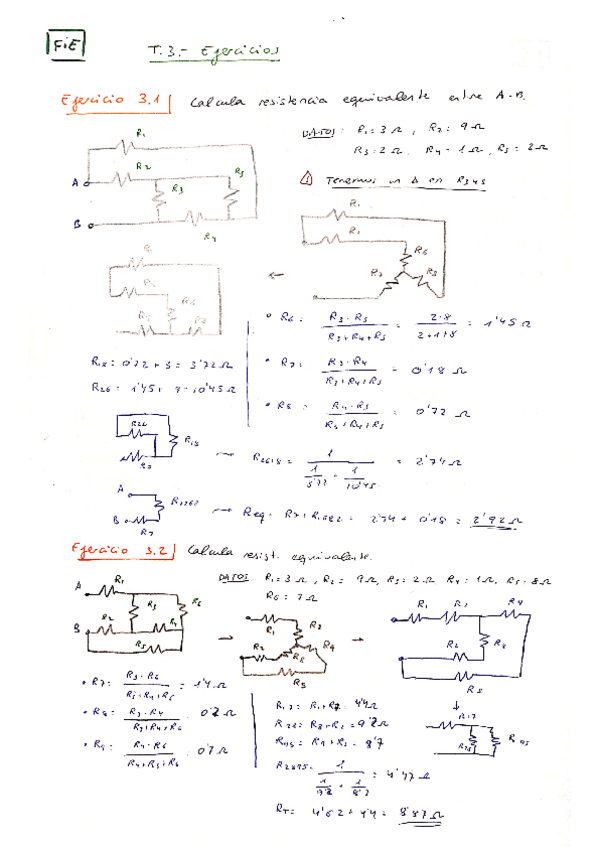 FiE
T.3.- Ejercicios
Ejercicio 3.1 Calcula resistencia equivalente entre A-B.
DATOS: R1= 3 Ω, R2= 9 Ω
R3= 2 Ω R4= 1 Ω, R5= 8 Ω
R1
R2
R3
R5
R4
A
B
Tenemos un Δ en R345
R1
R6
R7
R8
• R6: R3·R5 / R3+R4+R5 = 2·8 / 2+1+8 = 1'45 Ω
• R7: R3·R4 / R3+R4+R5 = 0'18 Ω
• R8: R4·R5 / R3+R4+R5 = 0'72 Ω
R18= 0'72 + 3 = 3'72 Ω
R26= 1'45+ 9 = 10'45 Ω
R26
R18
R7
R2618= 1 / 1/3'72 + 1/10'45 = 2'74 Ω
A
B
R7
Req= 2'74 + 0'18 = 2'92 Ω
Ejercicio 3.2 Calcula resist. equivalente.
DATOS R1= 3 Ω, R2= 9 Ω, R3= 2 Ω R4= 1 Ω, R5= 8 Ω
R6= 7 Ω
A
B
R1
R2
R3
R6
R4
R5
R1
R2
R8
R9
R5
R1
R7
R9
R2
R8
R5
• R7: R3·R6 / R3+R4+R6 = 1'4 Ω
• R8: R3·R4 / R3+R4+R6 0'2 Ω
• R9: R4·R6 / R4+R3+R6 0'7 Ω
R17= R1+R7 4'4 Ω
R28= R8+R2 = 9'2 Ω
R95= R9+R5 = 8'7
R17
R28
R95
R2895= 1 / 1/9'2 + 1/8'7 = 4'47 Ω
RT= 4'47 + 4'4 = 8'87 Ω